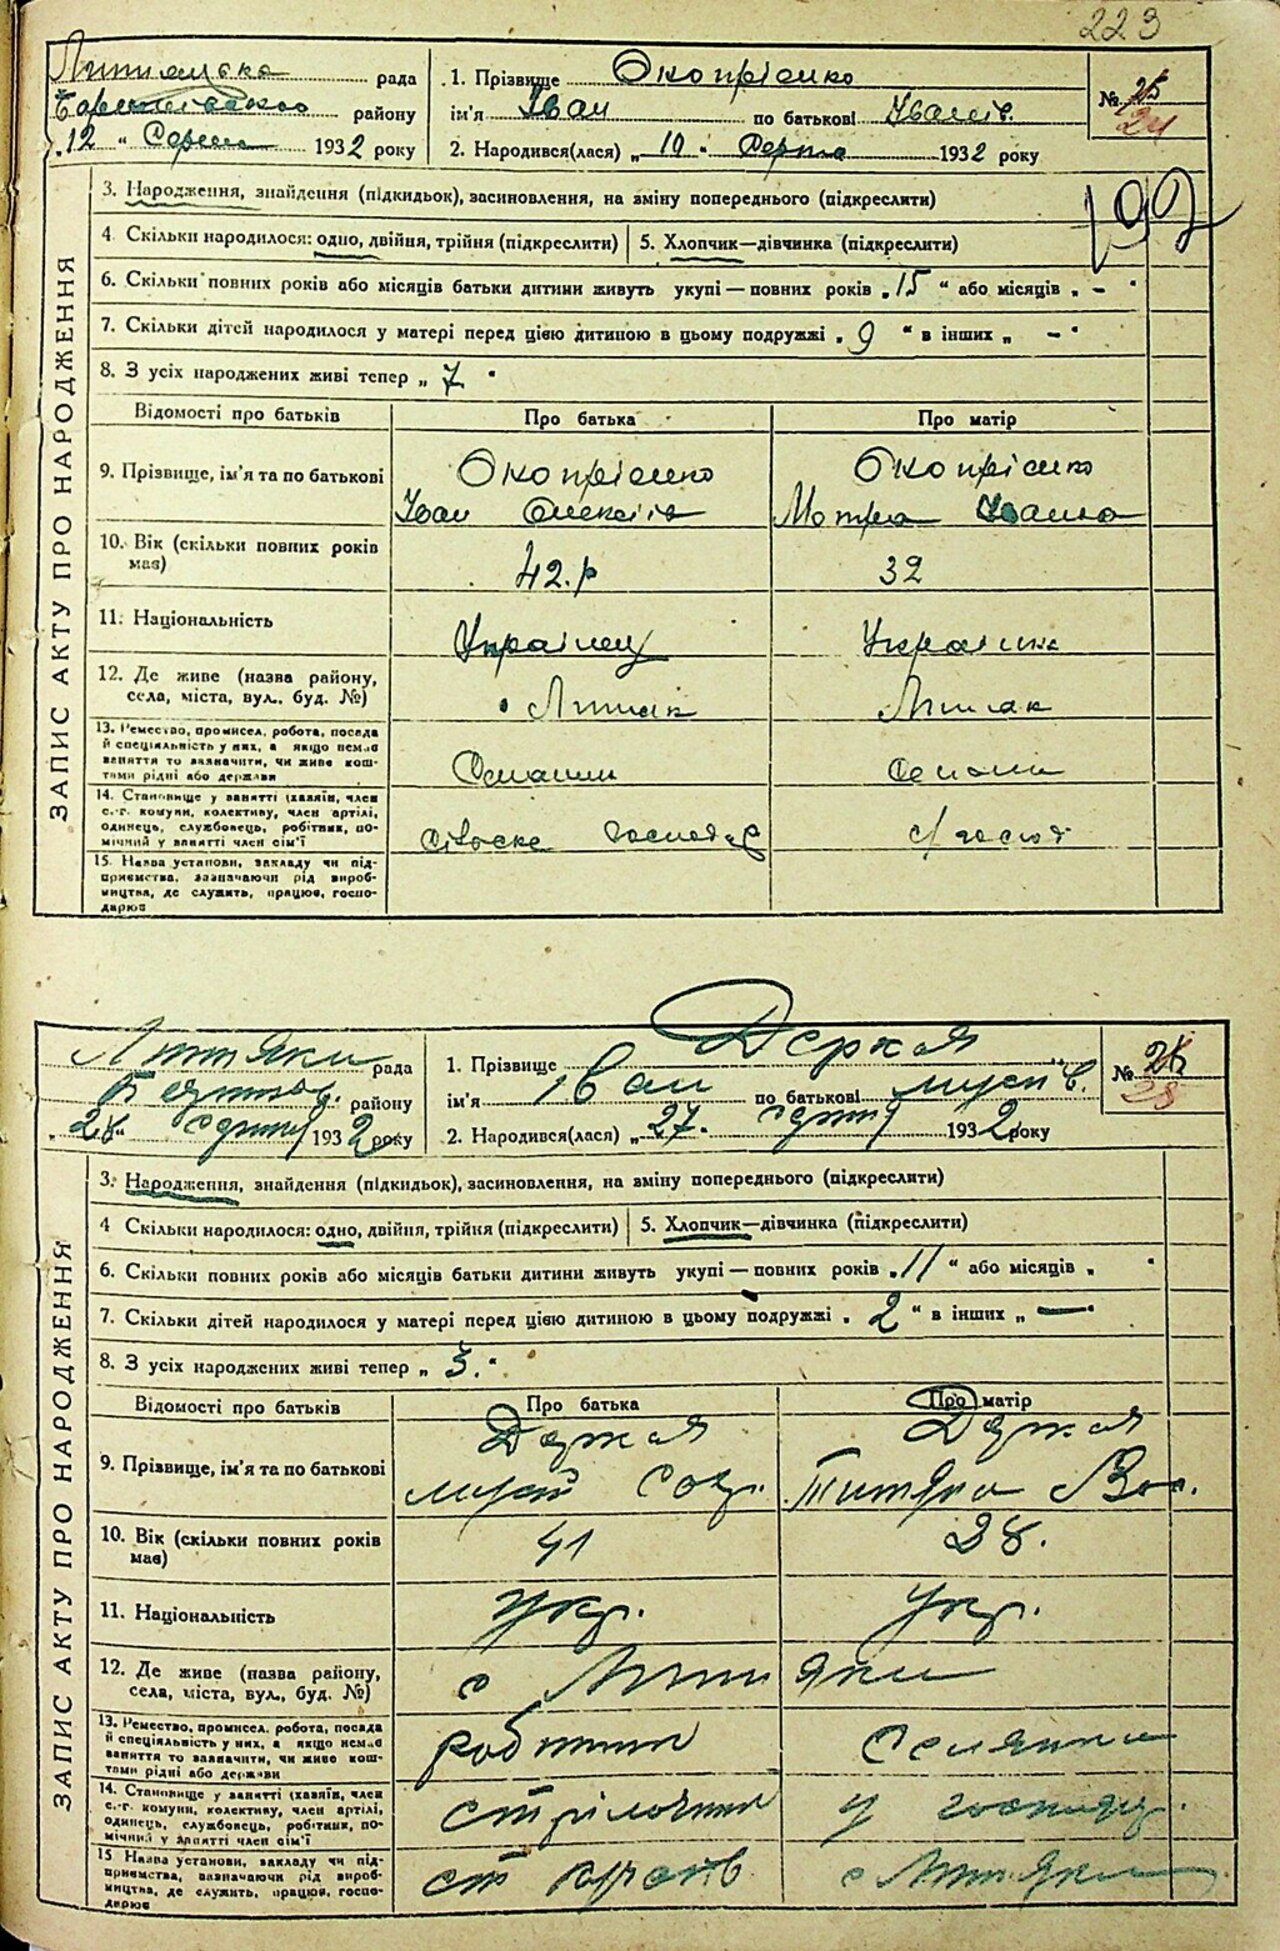 223
рада
1. Прізвище Окопрієнко
району
ім'я Іван по батькові Іванів.
№ 25
24
„12 “ Серпня 1932 року
2. Народився(лася) „ 10 “ Серпня 1932 року
ЗАПИС АКТУ ПРО НАРОДЖЕННЯ
3. Народження, знайдення (підкидьок), засиновлення, на зміну попереднього (підкреслити)
4. Скільки народилося: одно, двійня, трійня (підкреслити)
5. Хлопчик—дівчинка (підкреслити)
6. Скільки повних років або місяців батьки дитини живуть укупі — повних років „15“ або місяців „ - “
7. Скільки дітей народилося у матері перед цією дитиною в цьому подружжі „ 9 “ в інших „ - “
8. З усіх народжених живі тепер „ 7 “
Відомості про батьків
Про батька
Про матір
9. Прізвище, ім'я та по батькові
Окопрієнко
Окопрієнко
Іван Олексіїв
Мотря Іванна
10. Вік (скільки повних років має)
42.р
32
11. Національність
Українец
Українка
12. Де живе (назва району,
села, міста, вул., буд. №)
Липняк
Липняк
13. Ремество, промисел, робота, посада
й спеціяльність у них, а якщо немає
заняття то зазначити, чи живе кош-
тами рідні або держави
Селянин
14. Становище у занятті (хазяїн, член
с.-г. комуни, колективу, член артілі,
одинець, службовець, робітник, по-
мічний у занятті член сім'ї
с/господ
15. Назва установи, закладу чи під-
приємства, зазначаючи рід вироб-
ництва, де служить, працює, госпо-
дарює
рада
1. Прізвище Деркач
району
ім'я Іван по батькові
№ 28
„ 28 “ серпня 1932 року
2. Народився(лася) „ 27 “ серпня 1932 року
ЗАПИС АКТУ ПРО НАРОДЖЕННЯ
3. Народження, знайдення (підкидьок), засиновлення, на зміну попереднього (підкреслити)
4 Скільки народилося: одно, двійня, трійня (підкреслити)
5. Хлопчик—дівчинка (підкреслити)
6. Скільки повних років або місяців батьки дитини живуть укупі — повних років „11“ або місяців „ “
7. Скільки дітей народилося у матері перед цією дитиною в цьому подружжі „ 2 “ в інших „ — “
8. З усіх народжених живі тепер „ 3. “
Відомості про батьків
Про батька
Про матір
9. Прізвище, ім'я та по батькові
Деркач
Деркач
10. Вік (скільки повних років має)
41
28.
11. Національність
Укр.
Укр.
12. Де живе (назва району,
села, міста, вул., буд. №)
13. Ремество, промисел, робота, посада
й спеціяльність у них, а якщо немає
заняття то зазначити, чи живе кош-
тами рідні або держави
робітник
Селянка
14. Становище у занятті (хазяїн, член
с.-г. комуни, колективу, член артілі,
одинець, службовець, робітник, по-
мічний у занятті член сім'ї
стрілочник
у господ.
15 Назва установи, закладу чи під-
приємства, зазначаючи рід вироб-
ництва, де служить, працює, госпо-
дарює